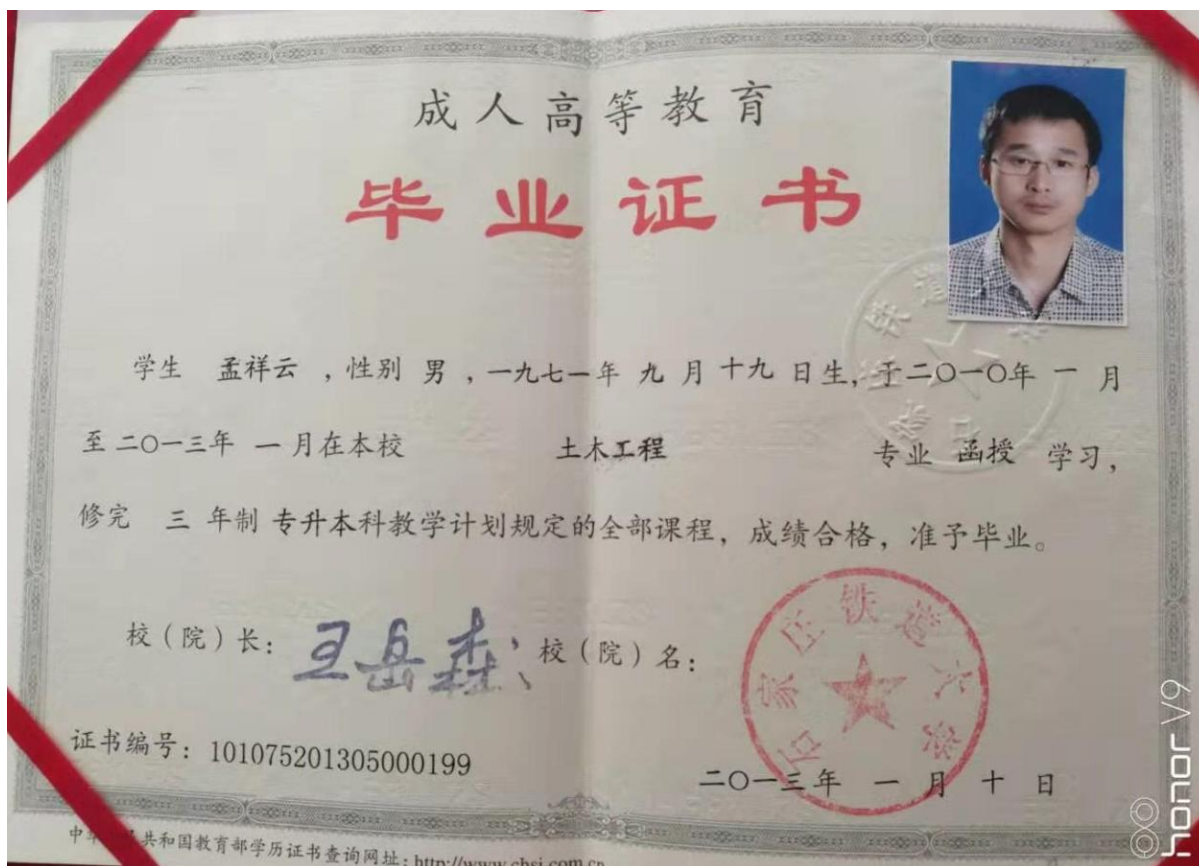 成人高等教育
毕业证书
学生 孟祥云 ，性别 男 ，一九七一年 九 月 十九 日生，于二〇一〇年 一 月
至二〇一三年 一 月在本校 土木工程 专业 函授 学习，
修完 三 年制 专升本科教学计划规定的全部课程，成绩合格，准予毕业。
校（院）长： 王岳森 校（院）名：
石家庄铁道大学
证书编号：101075201305000199
二〇一三年 一 月 十 日
中华 共和国教育部学历证书查询网址：http://www.chsi.com.cn
honor V9